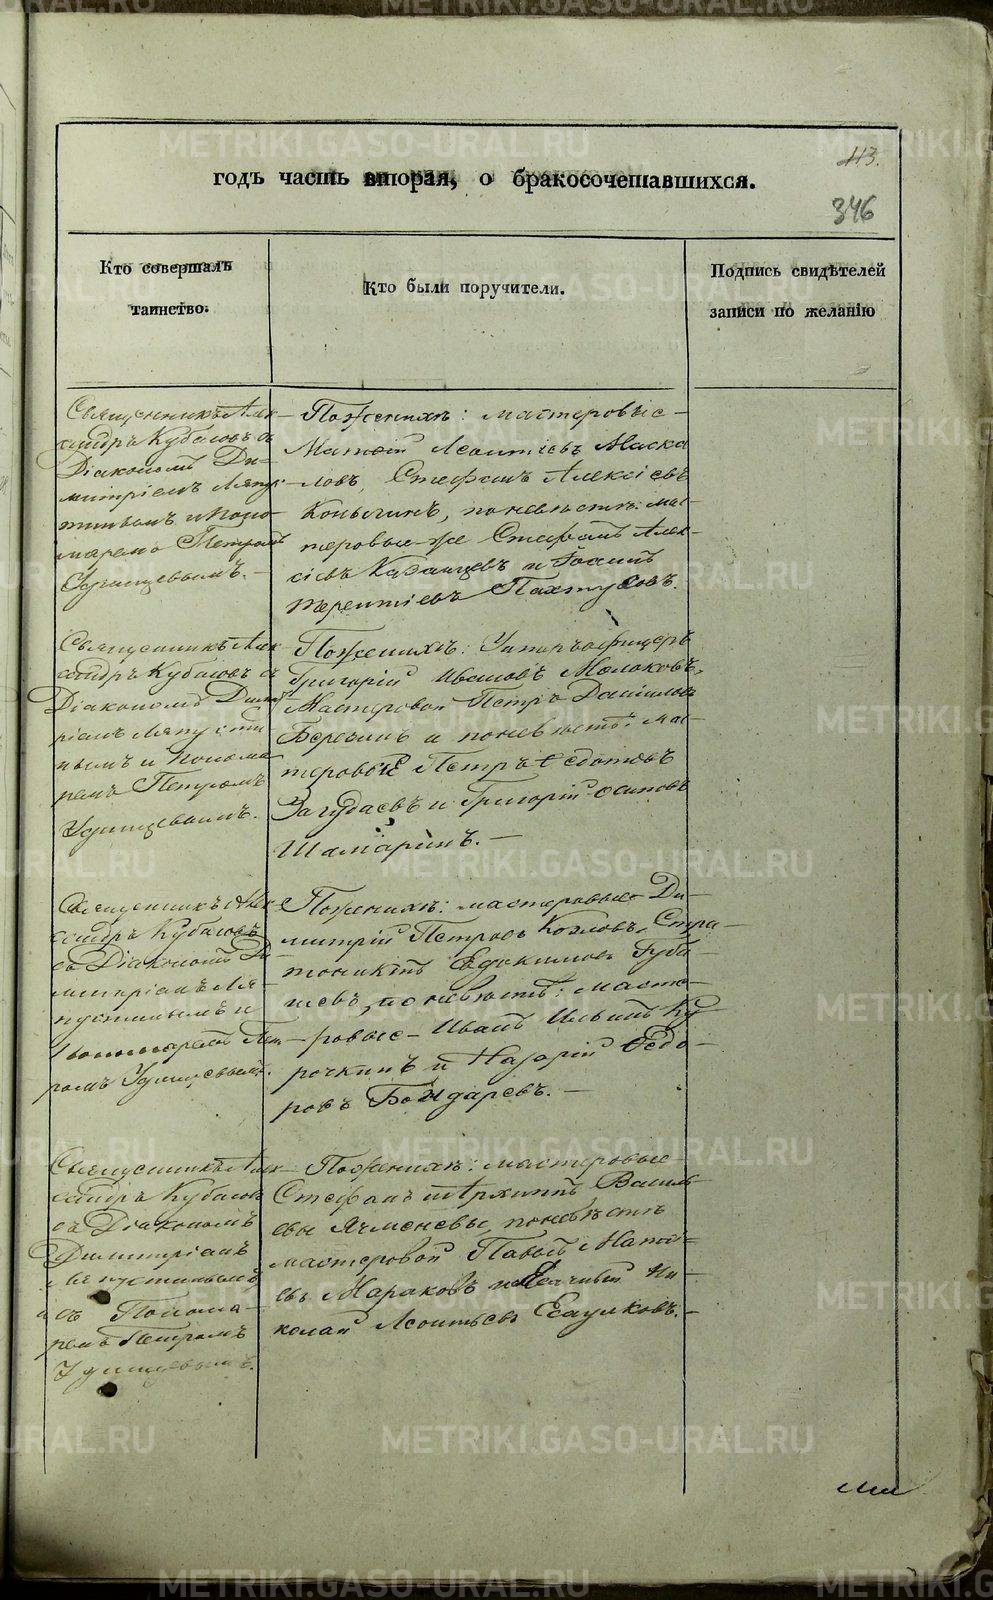 113.
346
годъ часть вторая, о бракосочетавшихся.
Кто совершалъ
таинство.
Кто были поручители.
Подпись свидѣтелей
записи по желанію
Священникъ Алек-
сандръ Кубасовъ съ
Діакономъ Ди-
митріемъ Ляпу-
стинымъ и Поно-
маремъ Петромъ
Удинцевымъ.-
По женихѣ: мастеровые-
Матѳій Леонтіевъ Маска
ловъ, Стефанъ Алексіевъ
Копылинъ, по невѣстѣ: мас-
теровые-же Стефанъ Алек-
сіевъ Казанцевъ и Іоаннъ
Терентіевъ Пахтусовъ.
Священникъ Алек
сандръ Кубасовъ съ
Діакономъ Димит
ріемъ Ляпусти
нымъ и Понома
ремъ Петромъ
Удинцевымъ.
По женихѣ: Унтеръ офицеръ
Григорій Ивановъ Молоковъ,
Мастеровой Петръ Даниловъ
Березинъ а по невѣстѣ: мас-
теровые Петръ Ѳедотовъ
Загудаевъ и Григорій Осиповъ
Шамаринъ.-
Священникъ Алек-
сандръ Кубасовъ
съ Діакономъ Ди-
митріемъ Ля-
пустинымъ и
Пономаремъ Пет-
ромъ Удинцевымъ.
По женихѣ: мастеровые Ди-
митрій Петровъ Козловъ, Стра-
тоникъ Евдокимовъ Губа-
шевъ, по невѣстѣ: масте-
ровые- Иванъ Ильинъ Ку
рочкинъ и Назарій Ѳедо-
ровъ Бондаревъ.-
Священникъ Алек-
сандръ Кубасовъ
съ Діакономъ
Димитріемъ
Ляпустинымъ
и съ Понома-
ремъ Петромъ
Удинцевымъ.
По женихѣ: мастеровые
Стефанъ и Архиппъ Василь
евы Ячменевы, по невѣстѣ
мастеровой Павелъ Матѳі-
евъ Мараковъ и Ни-
колай Леонтьевъ Еаулковъ.-